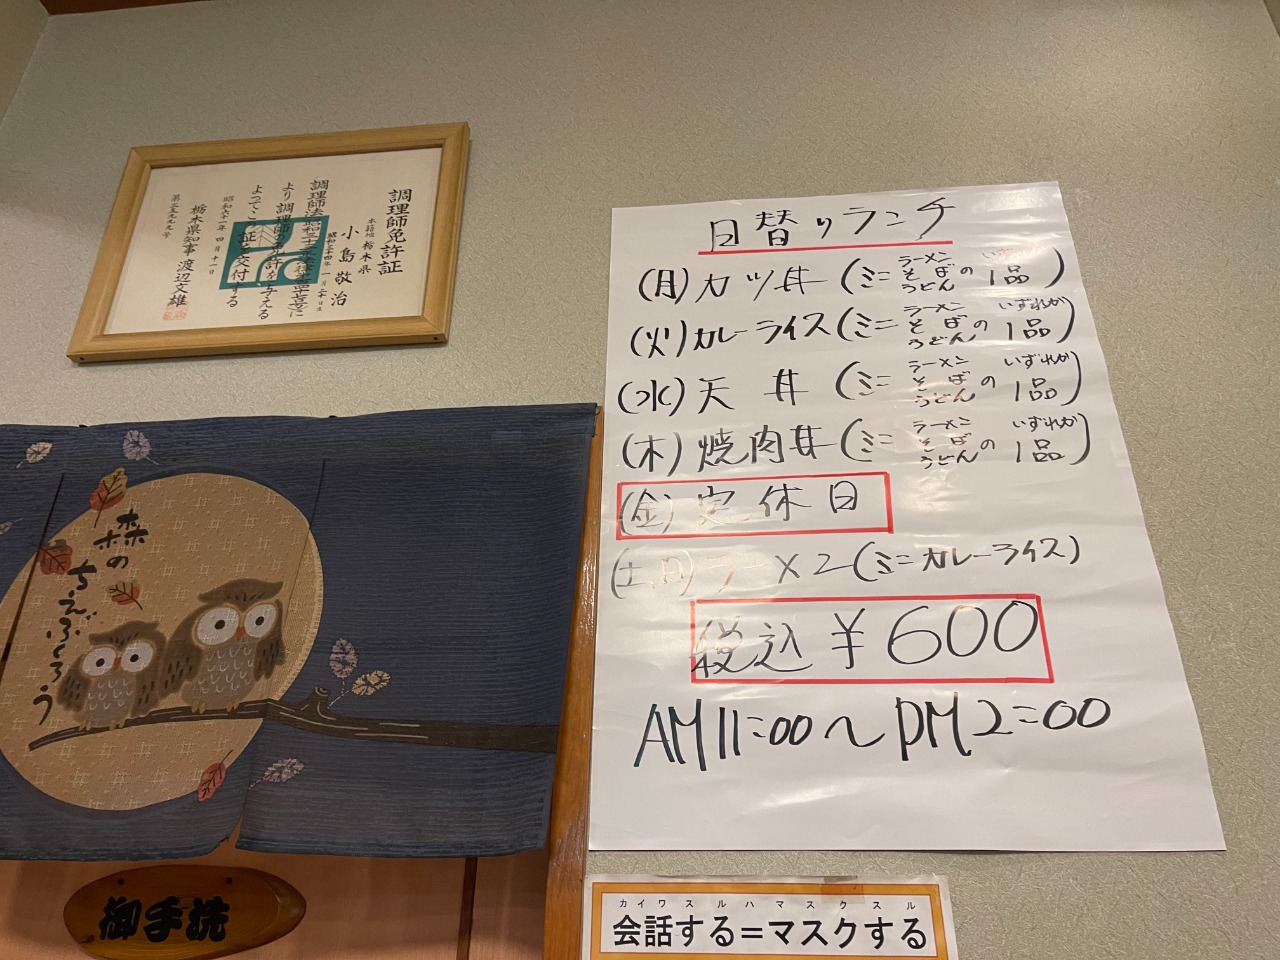 調理師免許証
本籍地 栃木県
小島敬治
昭和三十四年一月二十日生
調理師法
より調理師の免許を与える
よつてこの証を交付する
昭和六十一年四月十一日
栃木県知事 渡辺文雄
日替りランチ
(月)カツ丼(ミニ ラーメン そば うどん の 1品)
(火)カレーライス(ミニ ラーメン そば うどん の いずれか 1品)
(水)天丼(ミニ ラーメン そば うどん の いずれか 1品)
(木)焼肉丼(ミニ ラーメン そば うどん の いずれか 1品)
(金)定休日
(土,日)ラーメン(ミニカレーライス)
税込¥600
AM11=00~PM2=00
森の
ちえぶくろう
御手洗
カイワスルハマスクスル
会話する=マスクする